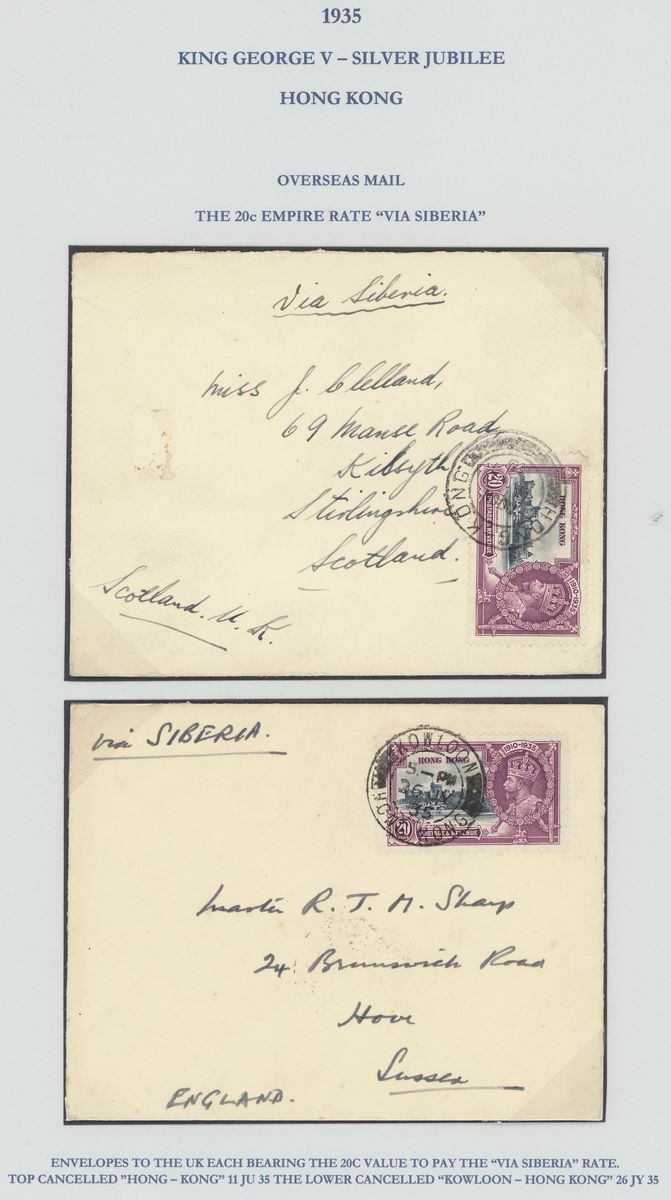 1935
KING GEORGE V – SILVER JUBILEE
HONG KONG
OVERSEAS MAIL
THE 20c EMPIRE RATE “VIA SIBERIA”
Via Siberia.
Miss J. Clelland,
69 Manse Road
Kilsyth
Stirlingshire
Scotland.
Scotland. U. K.
HONG KONG
20
POSTAGE & REVENUE
HONG KONG
1910-1935
via SIBERIA.
KOWLOON
5 - PM
35
HONG KONG
HONG KONG
1910-1935
20
POSTAGE & REVENUE
Master R. T. M. Sharp
24 Brunswick Road
Hove
Sussex
ENGLAND.
ENVELOPES TO THE UK EACH BEARING THE 20C VALUE TO PAY THE “VIA SIBERIA” RATE.
TOP CANCELLED "HONG – KONG” 11 JU 35 THE LOWER CANCELLED “KOWLOON – HONG KONG” 26 JY 35